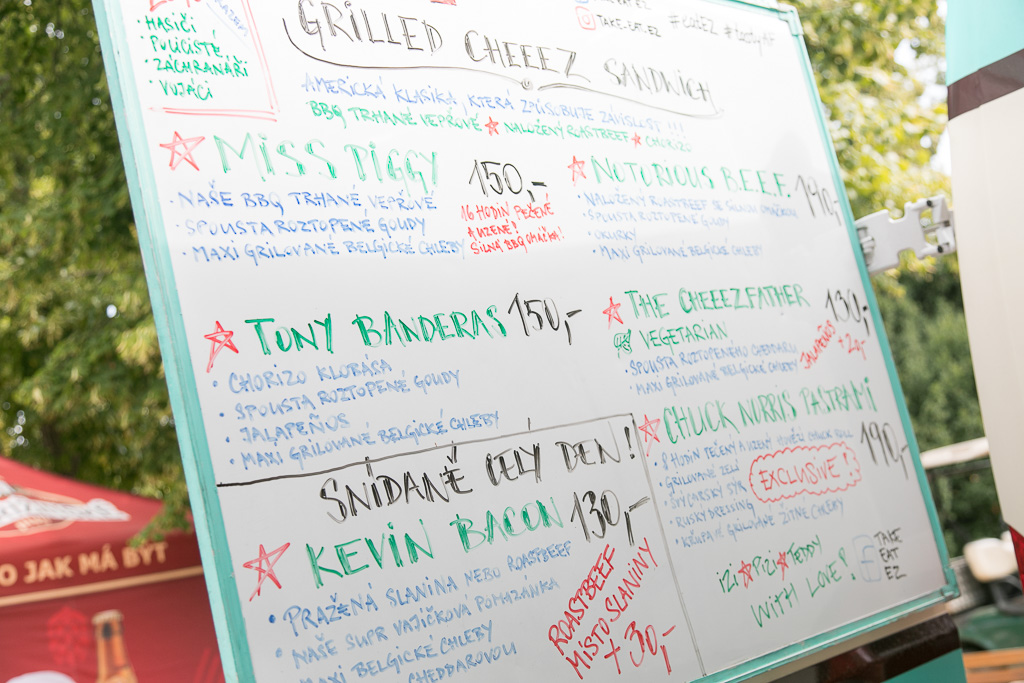 • HASIČI
• POLICISTÉ
• ZÁCHRANÁŘI
• VOJÁCI
TAKE-EAT.EZ
GRILLED CHEEEZ SANDWICH
AMERICKÁ KLASIKA, KTERÁ ZPŮSOBUJE ZÁVISLOST !!!
BBQ TRHANÉ VEPŘOVÉ ☆ NALOŽENÝ ROASTBEEF ☆ CHORIZO
☆ MISS PIGGY 150,-
• NAŠE BBQ TRHANÉ VEPŘOVÉ
• SPOUSTA ROZTOPENÉ GOUDY
• MAXI GRILOVANÉ BELGICKÉ CHLEBY
16 HODIN PEČENÉ
A UZENÉ!
SILNÁ BBQ OMÁČKA!
☆ NOTORIOUS B.E.E.F. 190,-
• NALOŽENÝ ROASTBEEF SE SILNOU OMÁČKOU
• SPOUSTA ROZTOPENÉ GOUDY
• OKURKY
• MAXI GRILOVANÉ BELGICKÉ CHLEBY
☆ TONY BANDERAS 150,-
• CHORIZO KLOBÁSA
• SPOUSTA ROZTOPENÉ GOUDY
• JALAPEÑOS
• MAXI GRILOVANÉ BELGICKÉ CHLEBY
☆ THE CHEEEZFATHER 130,-
VEGETARIAN
• SPOUSTA ROZTOPENÉHO CHEDDARU
• MAXI GRILOVANÉ BELGICKÉ CHLEBY
JALAPEÑOS
☆ CHUCK NORRIS PASTRAMI 190,-
• 8 HODIN PEČENÝ A UZENÝ HOVĚZÍ CHUCK ROLL
• GRILOVANÉ ZELÍ
• ŠVÝCARSKÝ SÝR
• RUSKÝ DRESSING
• KŘUPAVÉ GRILOVANÉ ŽITNÉ CHLEBY
EXCLUSIVE!
SNÍDANĚ CELÝ DEN!
☆ KEVIN BACON 130,-
• PRAŽENÁ SLANINA NEBO ROASTBEEF
• NAŠE SUPR VAJÍČKOVÁ POMAZÁNKA
MAXI BELGICKÉ CHLEBY
CHEDDAROVOU
ROASTBEEF
MÍSTO SLANINY
+ 30,-
IZI ☆ PIZI ☆ TEDDY
WITH LOVE!
TAKE
EAT
EZ
O JAK MÁ BÝT